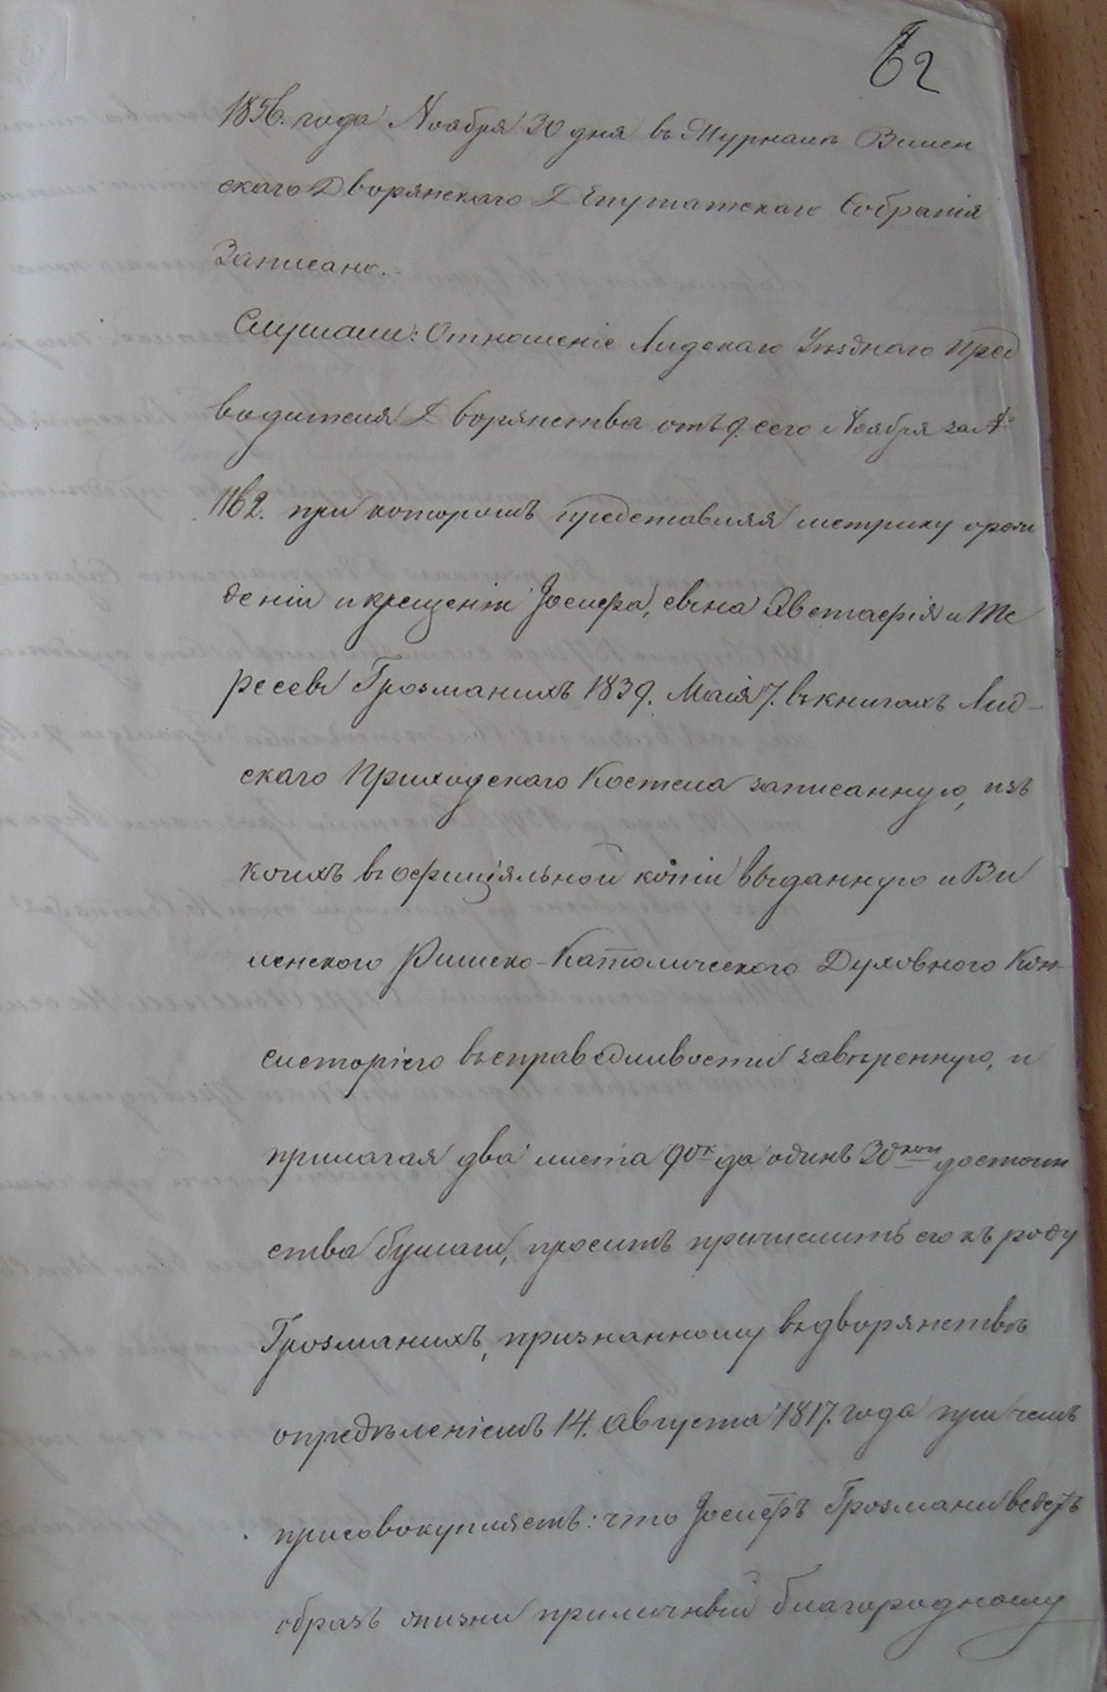 62
1856. года Ноября 30 дня въ Журналѣ Вилен
скаго Дворянскаго Депутатскаго Собранія
Записано.
Слушали: Отношеніе Лидскаго Уѣзднаго Пред
водителя Дворянства отъ 9. сего Ноября за №
1162. при которомъ представляя метрику о рож
деніи и крещеніи Іосифа, сына Явстафія и Те
ресы Грозмановъ 1839. Маія 7. въ книгахъ Лид-
скаго Приходскаго Костела записанную, изъ
коихъ въ офиціяльной копіи выданную и Ви
ленского Римско-Католическаго Духовного Кон-
систоріею въ справедливости завѣренную, и
прилагая два листа 90к да одинъ 30коп достоин
ства бумаги, просить причислить его къ роду
Грозмановъ, признанному въ дворянствѣ
опредѣленіемъ 14. Августа 1817. года при чемъ
присовокупляетъ: что Іосифъ Грозмани ведетъ
образъ жизни приличный благородному